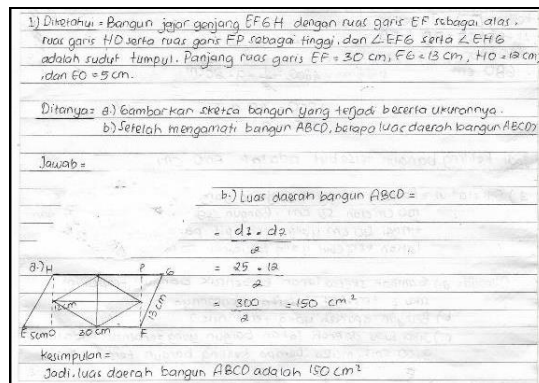 1) Diketahui = Bangun jajar genjang EFGH dengan ruas garis EF sebagai alas.
ruas garis HO serta ruas garis FP sebagai tinggi, dan ∠EFG serta ∠EHG
adalah sudut tumpul. Panjang ruas garis EF = 30 cm, FG = 13 cm, HO = 12 cm
,dan EO = 5 cm.
Ditanya = a.) Gambarkan sketsa bangun yang terjadi beserta ukurannya.
b.) Setelah mengamati bangun ABCD, berapa luas daerah bangun ABCD?
Jawab =
b.) Luas daerah bangun ABCD =
= d1 . d2
2
a.) H P G
= 25 . 12
2
12cm
13 cm
= 300 = 150 cm²
2
E 5cm O 30 cm F
Kesimpulan =
Jadi, luas daerah bangun ABCD adalah 150 cm²